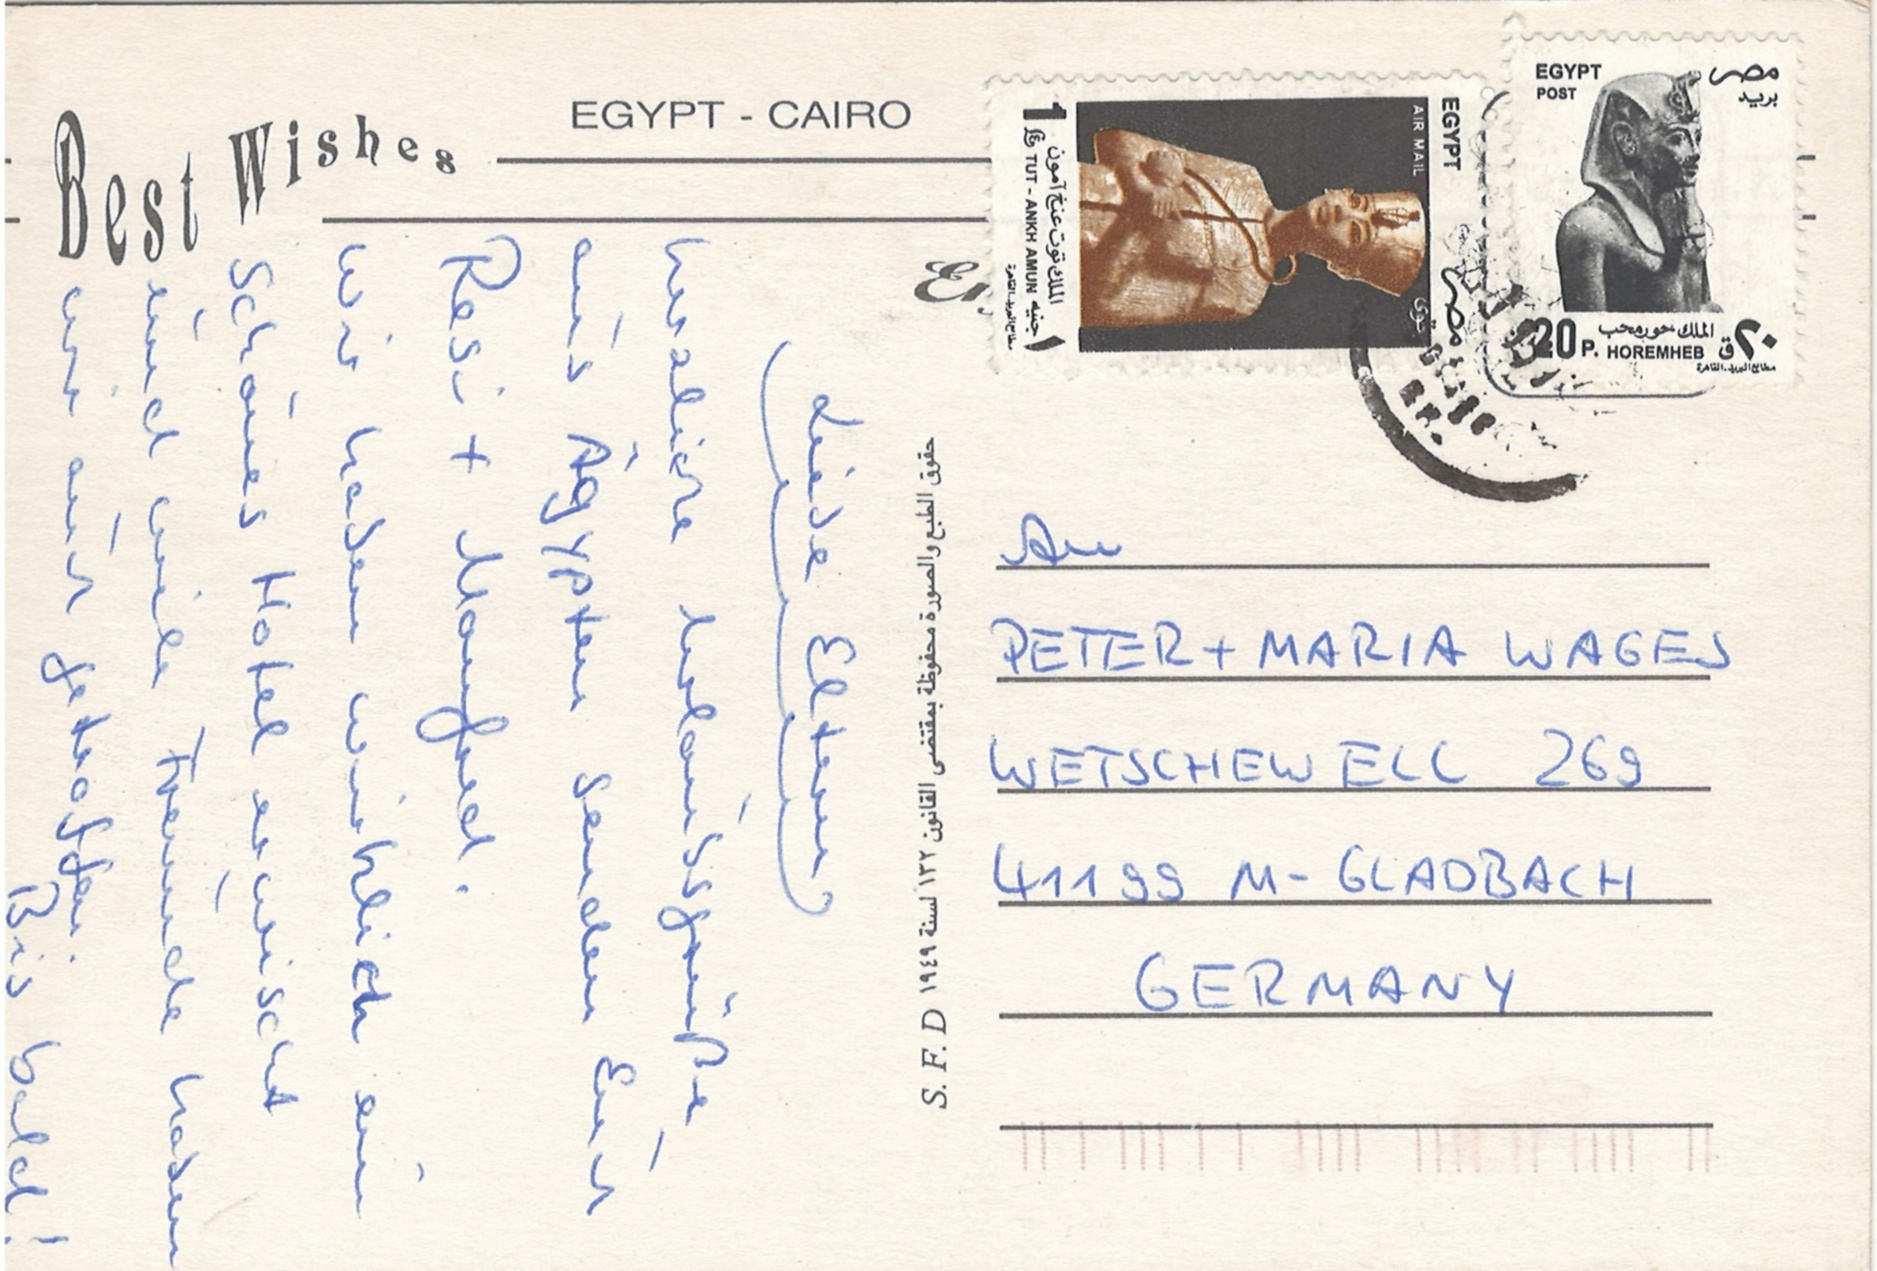 EGYPT - CAIRO
Best Wishes
Liebe Eltern
herzliche Urlaubsgrüße
aus Ägypten senden Euch
Resi + Manfred.
Wir haben wirklich ein
schönes Hotel erwischt
und viele Freunde haben
wir auch getroffen.
Bis bald!
حقوق الطبع والصورة محفوظة بمقتضى القانون ١٣٢ لسنة ١٩٤٩
S. F. D
EGYPT
AIR MAIL
مصر
جوى
1 £E TUT - ANKH AMUN جنيه ١
الملك توت عنخ آمون
مطابع البريد - القاهرة
EGYPT مصر
POST بريد
الملك حورمحب
20 P. HOREMHEB ٢٠ ق
مطابع البريد - القاهرة
An
PETER + MARIA WAGES
WETSCHEWELL 269
41199 M-GLADBACH
GERMANY